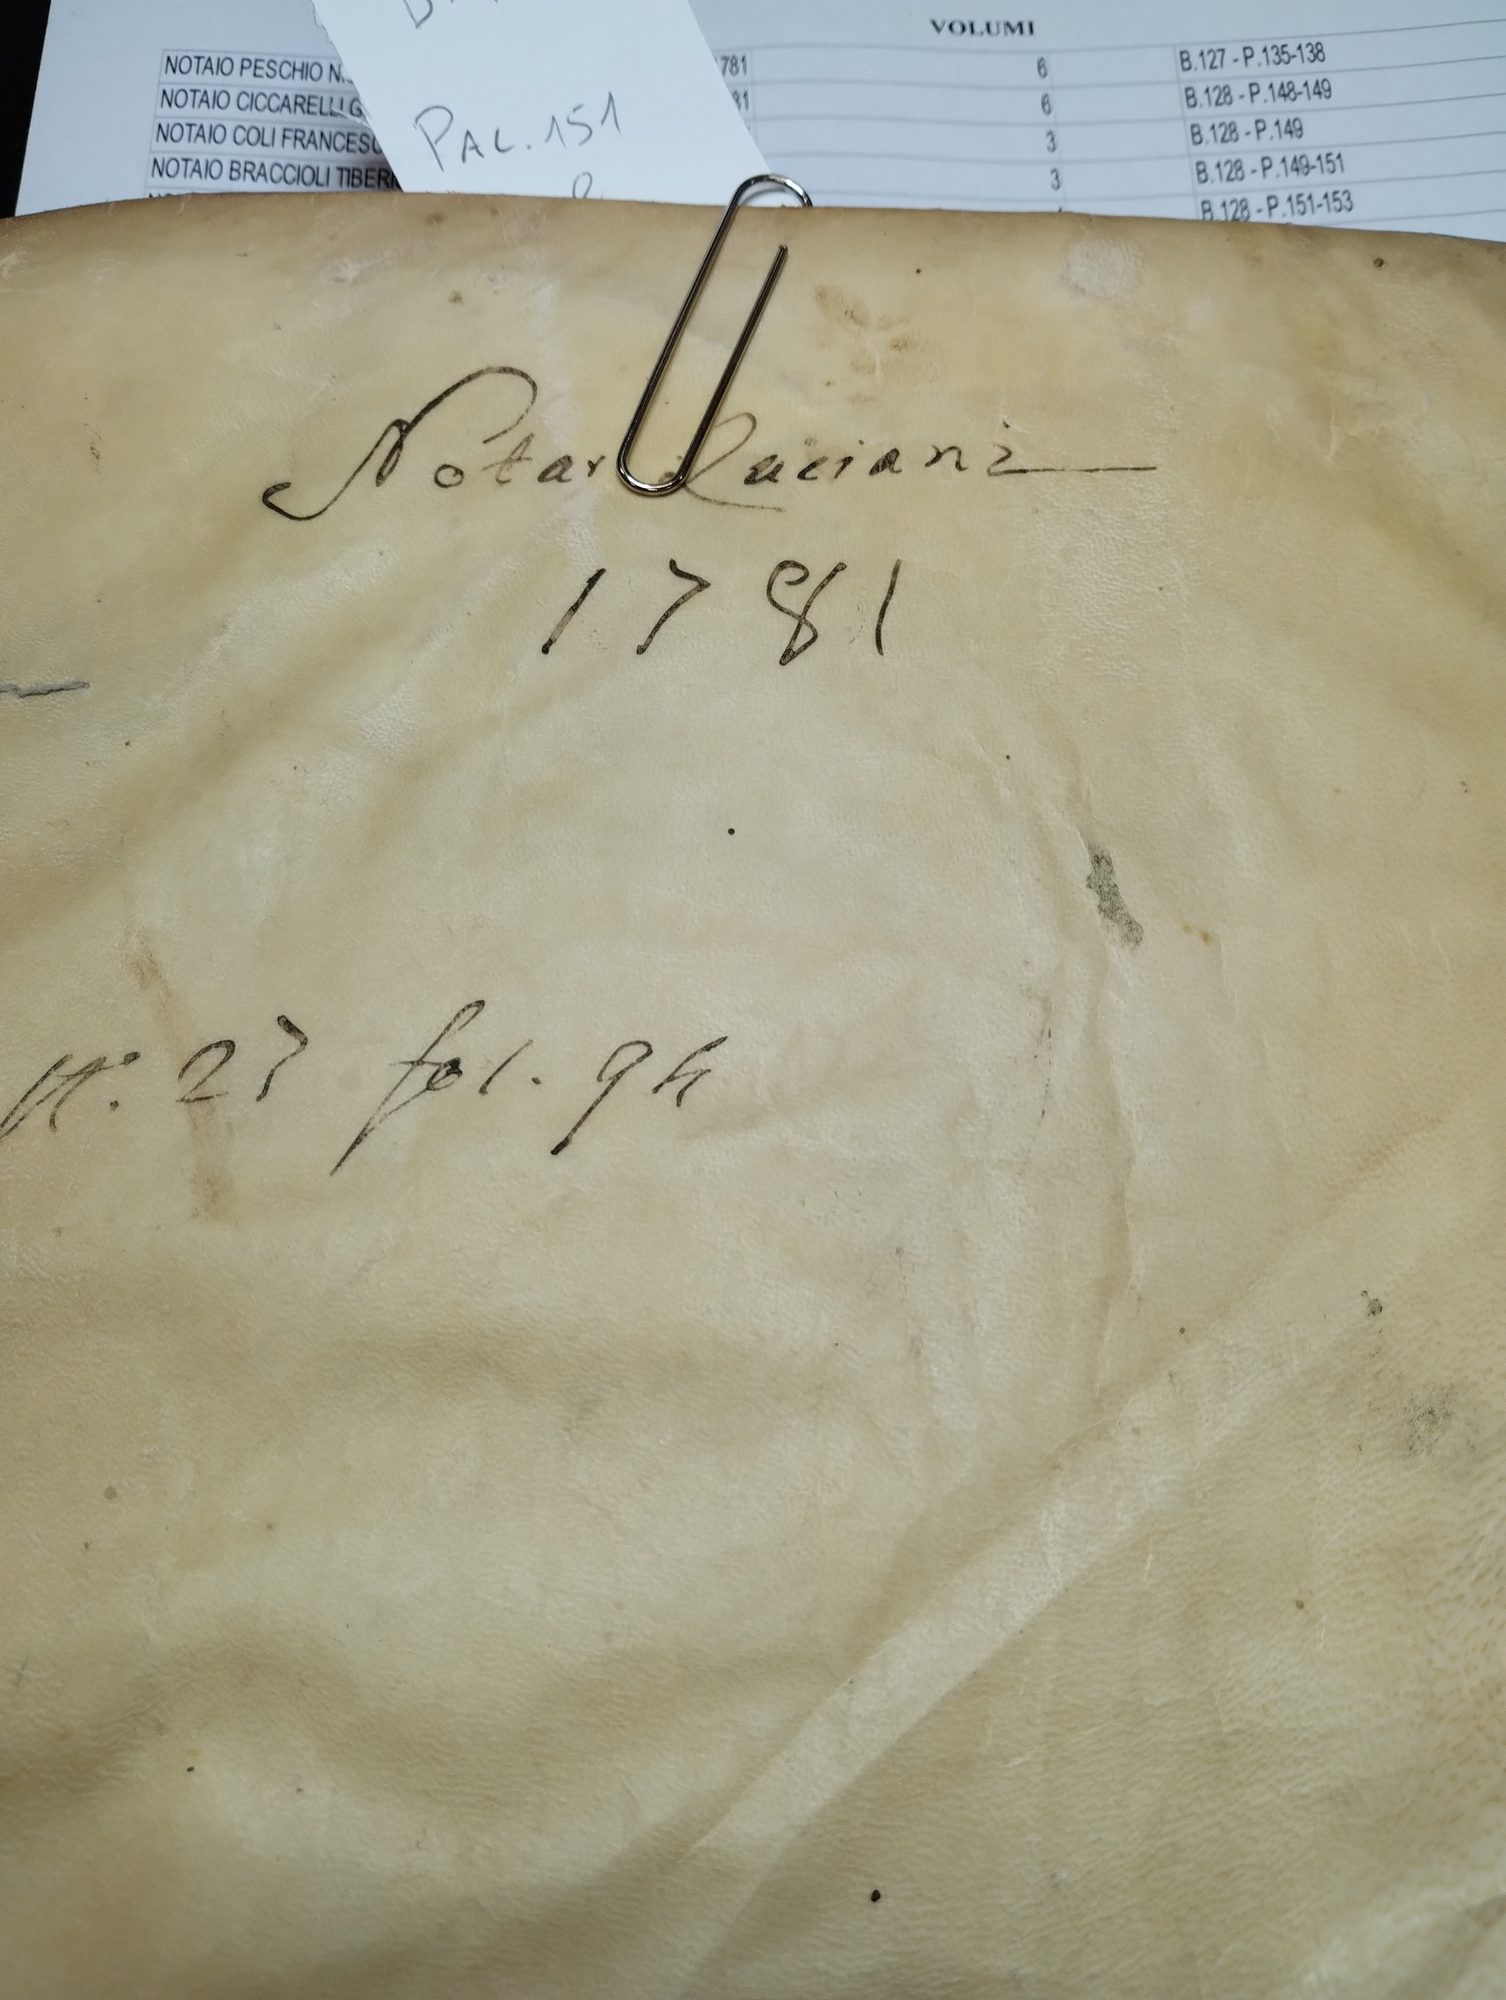 VOLUMI
NOTAIO PESCHIO 781 6 B.127 - P.135-138
NOTAIO CICCARELLI G 81 6 B.128 - P.148-149
NOTAIO COLI FRANCESC 3 B.128 - P.149
NOTAIO BRACCIOLI TIBERI 3 B.128 - P.149-151
B.128 - P.151-153
PAL. 151
Notar Luciani
1781
N.° 23 fol. 94